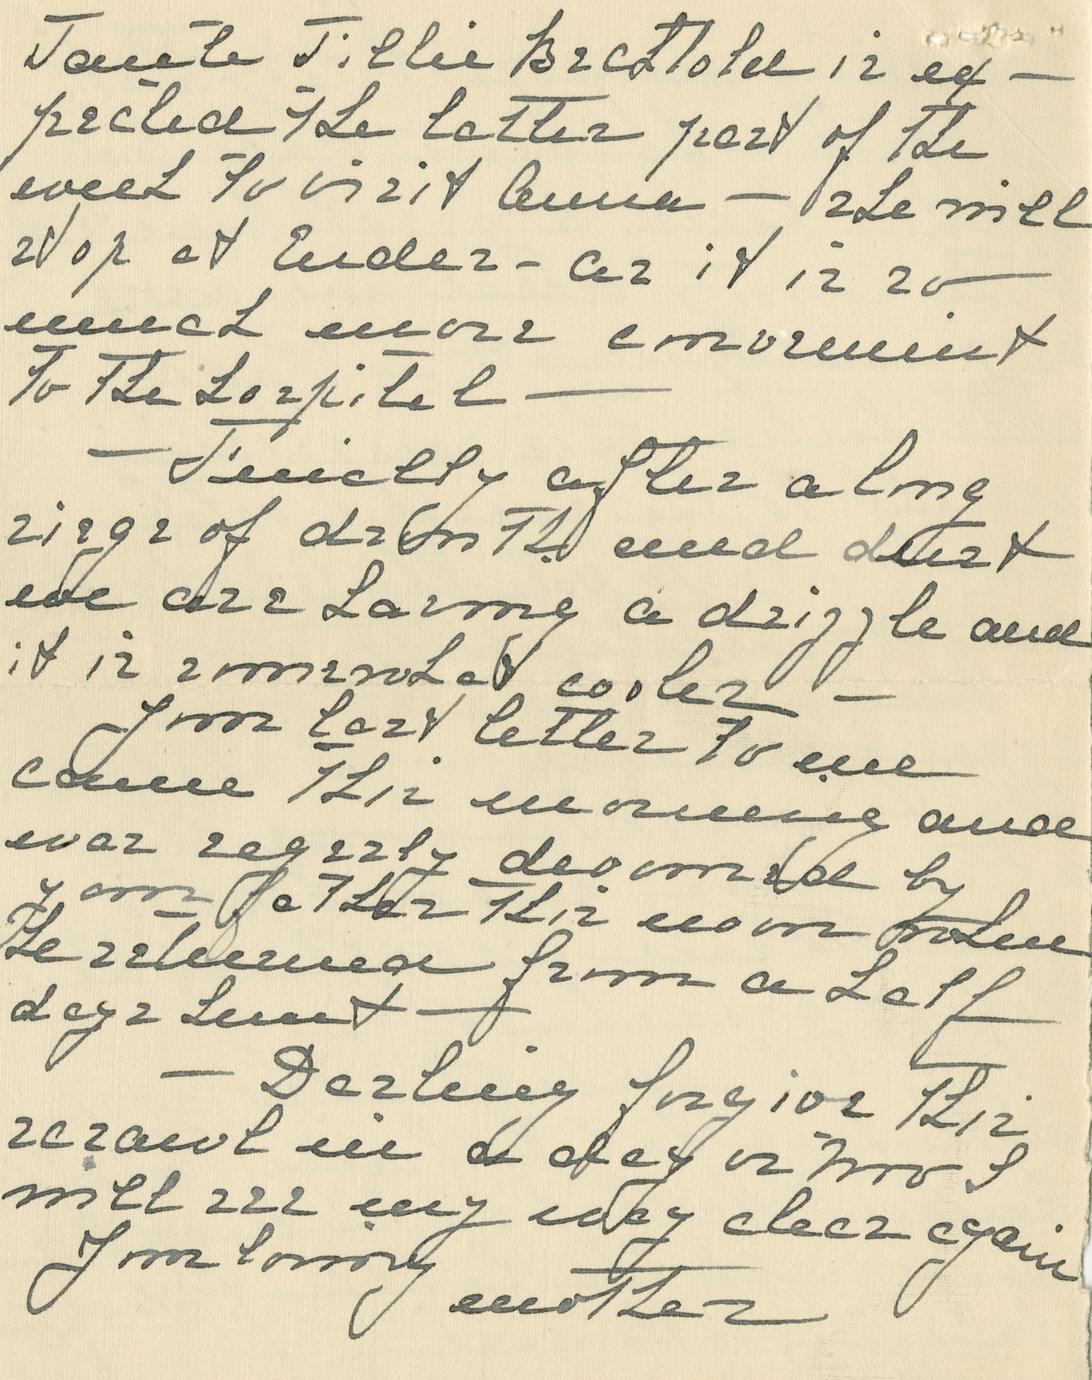 Tante Tillie Bechtold is ex-
pected the latter part of the
week to visit Anna — she will
stop at Enders - as it is so
much more convenient
to the hospital —
— Finally after a long
siege of drouth and dust
we are having a drizzle and
it is somewhat cooler —
Your last letter to me
came this morning and
was eagerly devoured by
your father this noon when
he returned from a half
days hunt —
— Darling forgive this
scrawl in a day or two I
will see my way clear again
Your loving
mother